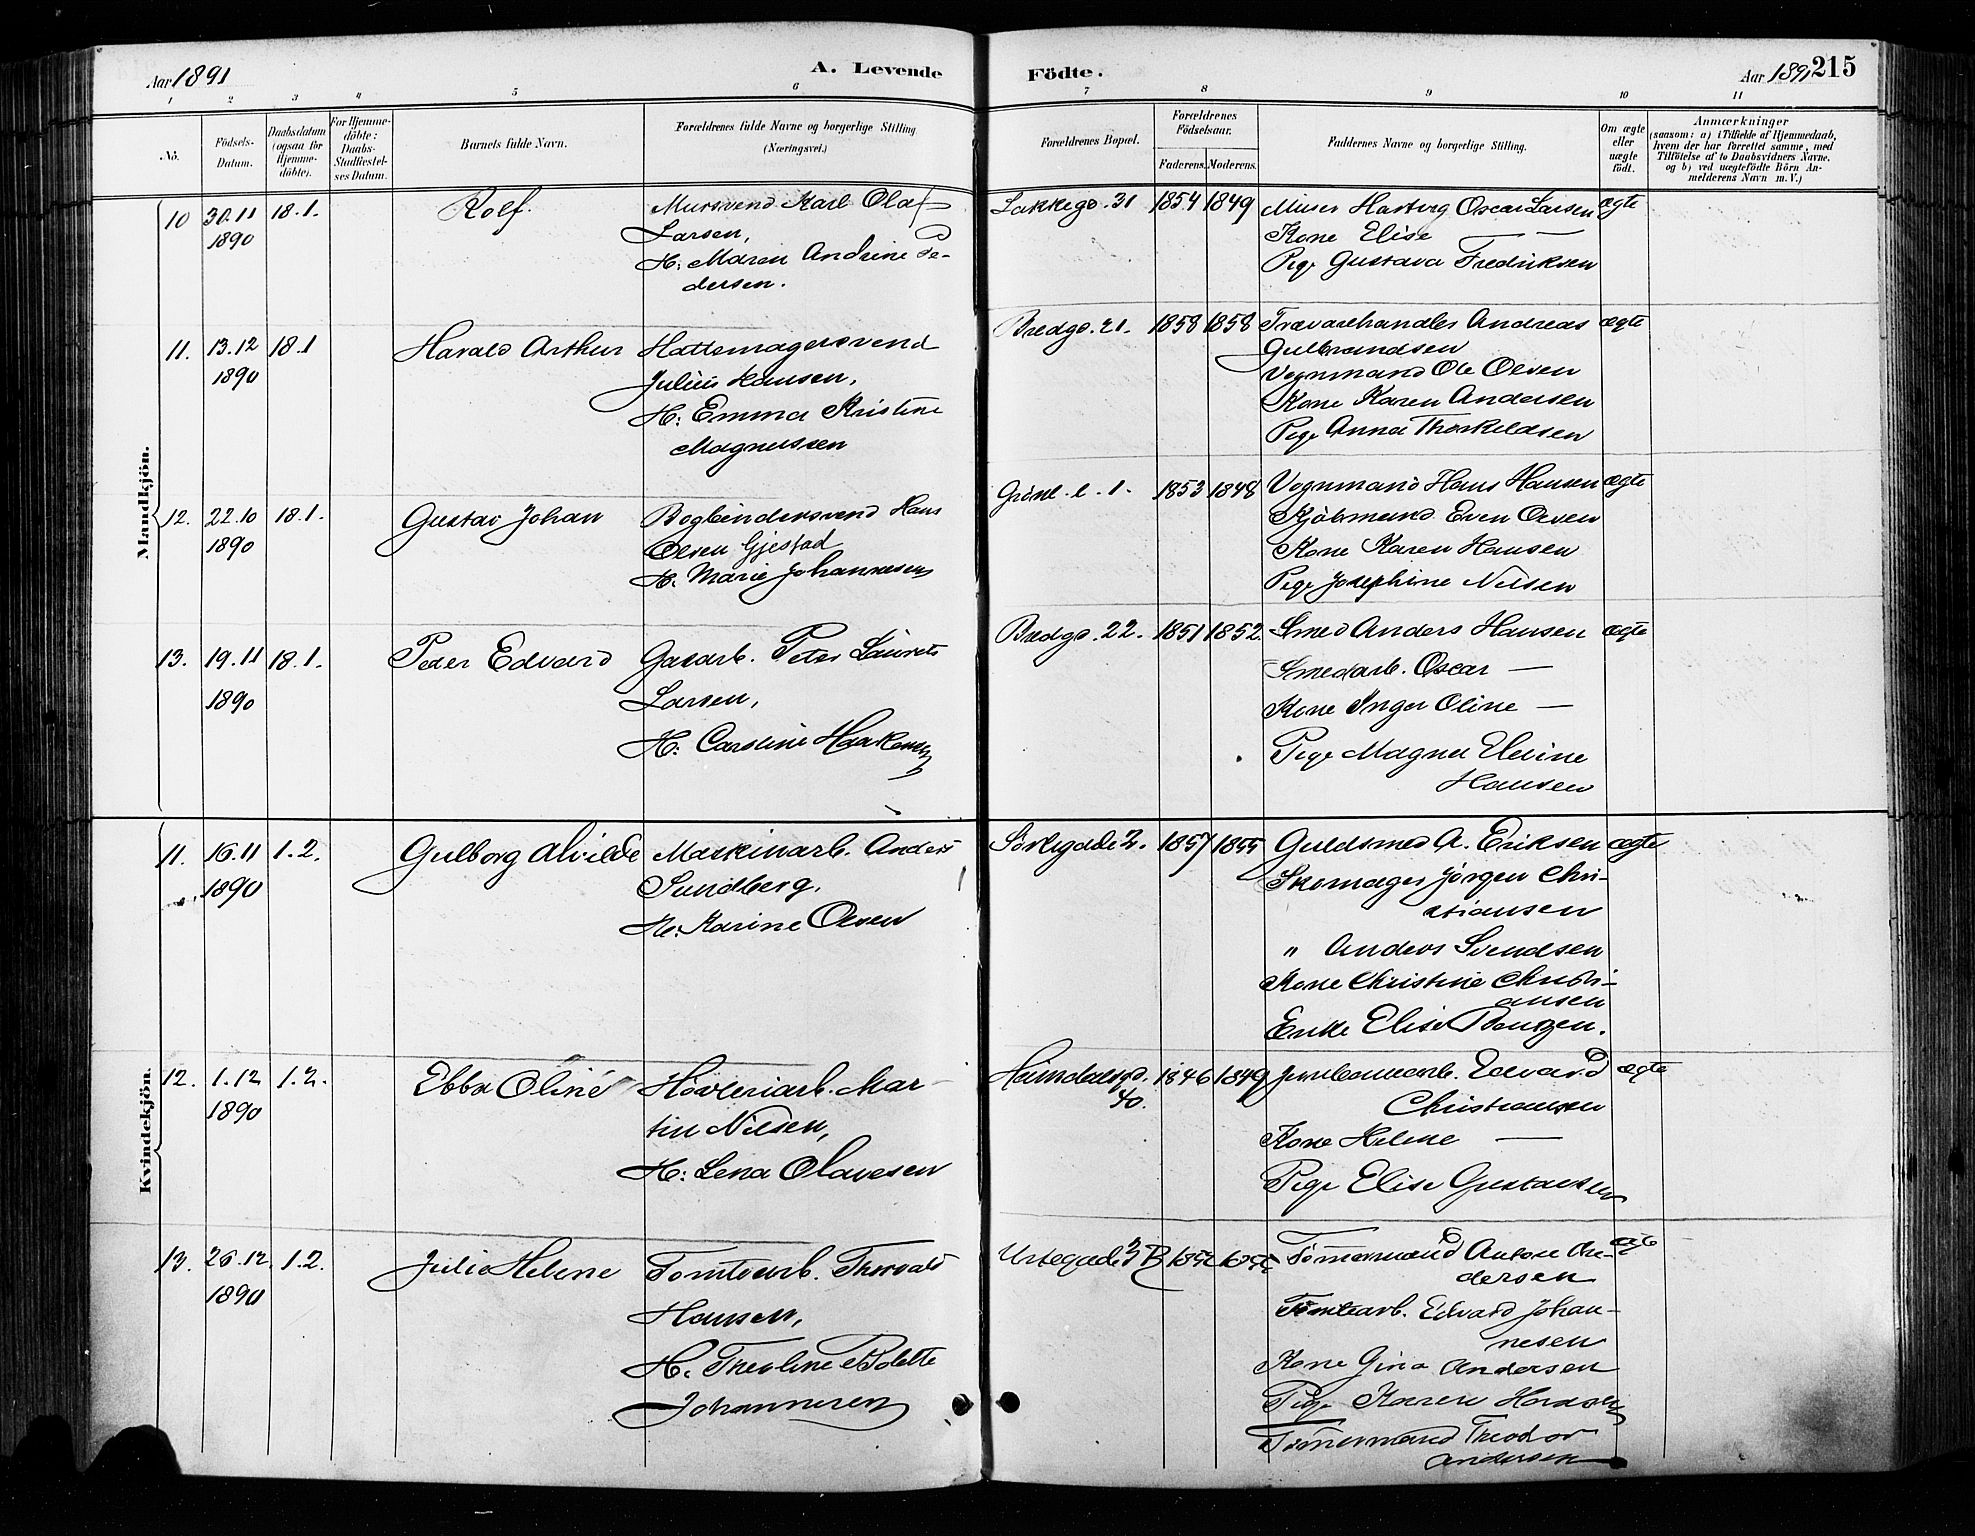 Aar 1891
A. Levende
Födte.
Aar 1891
215
1 2 3 4 5 6 7 8 9 10 11
No.
Födsels-
Datum.
Daabsdatum
(ogsaa for
Hjemme-
döbte).
For Hjemme-
döbte:
Daabs-
Stadfæstel-
ses Datum.
Barnets fulde Navn.
Forældrenes fulde Navne og borgerlige Stilling
(Næringsvei.)
Forældrenes Bopæl.
Forældrenes
Födselsaar.
Faderens. Moderens.
Faddernes Navne og borgerlige Stilling.
Om ægte
eller
uægte
födt.
Anmærkninger
(saasom: a) i Tilfælde af Hjemmedaab,
hvem der har forrettet samme, med
Tilföielse af to Daabsvidners Navne,
og b) ved uægtefödte Börn An-
melderens Navn m. V.)
Mandkjön.
10 30.11 18.1. Rolf.
1890
Mursvend Karl Olaf
Larsen,
H: Maren Andrine Pe-
dersen.
Lakkegd. 31 1854 1849
Murer Hartvig Oscar Larsen ægte
Kone Elise —
Pige Gustava Fredriksen
11. 13.12 18.1 Harald Arthur
1890
Hattemagersvend
Julius Hansen,
H: Emma Kristine
Magnussen
Bredgd. 21. 1858 1858
Trævarehandler Andreas ægte
Gulbrandsen
Vognmand Ole Olsen
Kone Karen Andersen
Pige Anna Thorkeldsen
12. 22.10 18.1. Gustav Johan
1890
Bogbindersvend Hans
Olsen Gjestad
H. Marie Johannesen
Grönl. l. 1. 1853 1848
Vognmand Hans Hansen ægte
Kjöbmand Even Olsen
Kone Karen Hansen
Pige Josephine Nilsen
13. 19.11 18.1. Peder Edvard
1890
Gasarb. Peter Laurets
Larsen,
H: Caroline Haakensen
Bredgd. 22. 1851 1852
Smed Anders Hansen ægte
Smedarb. Oscar —
Kone Inger Oline —
Pige Magna Elvine
Hansen
Kvindekjön.
11. 16.11 1.2. Gulborg Alvilde
1890
Maskinarb. Anders
Sundberg,
H: Karine Olsen
Sörligade 2. 1857 1855
Guldsmed A. Eriksen ægte
Skomager Jörgen Chri-
stiansen
" Anders Svendsen
Kone Christine Christi-
ansen
Enke Elise Bentzen.
12. 1.12 1.2. Ebba Oline
1890
Høvleriarb. Mar-
tin Nilsen,
H: Lena Olavesen
Heimdalsgd. 1846 1849
40.
Jernbanearb. Edvard ægte
Christiansen
Kone Helene —
Pige Elise Gustavsen
13. 26.12. 1.2. Julie Helene
1890
Tomtearb. Thorvald
Hansen,
H. Theoline Bolette
Johannesen
Urtegade 3 B
Tømermand Anton An-
dersen
Tomtearb. Edvard Johan-
nesen
Kone Gina Andersen
Pige Karen
Tømermand Theodor
Andersen